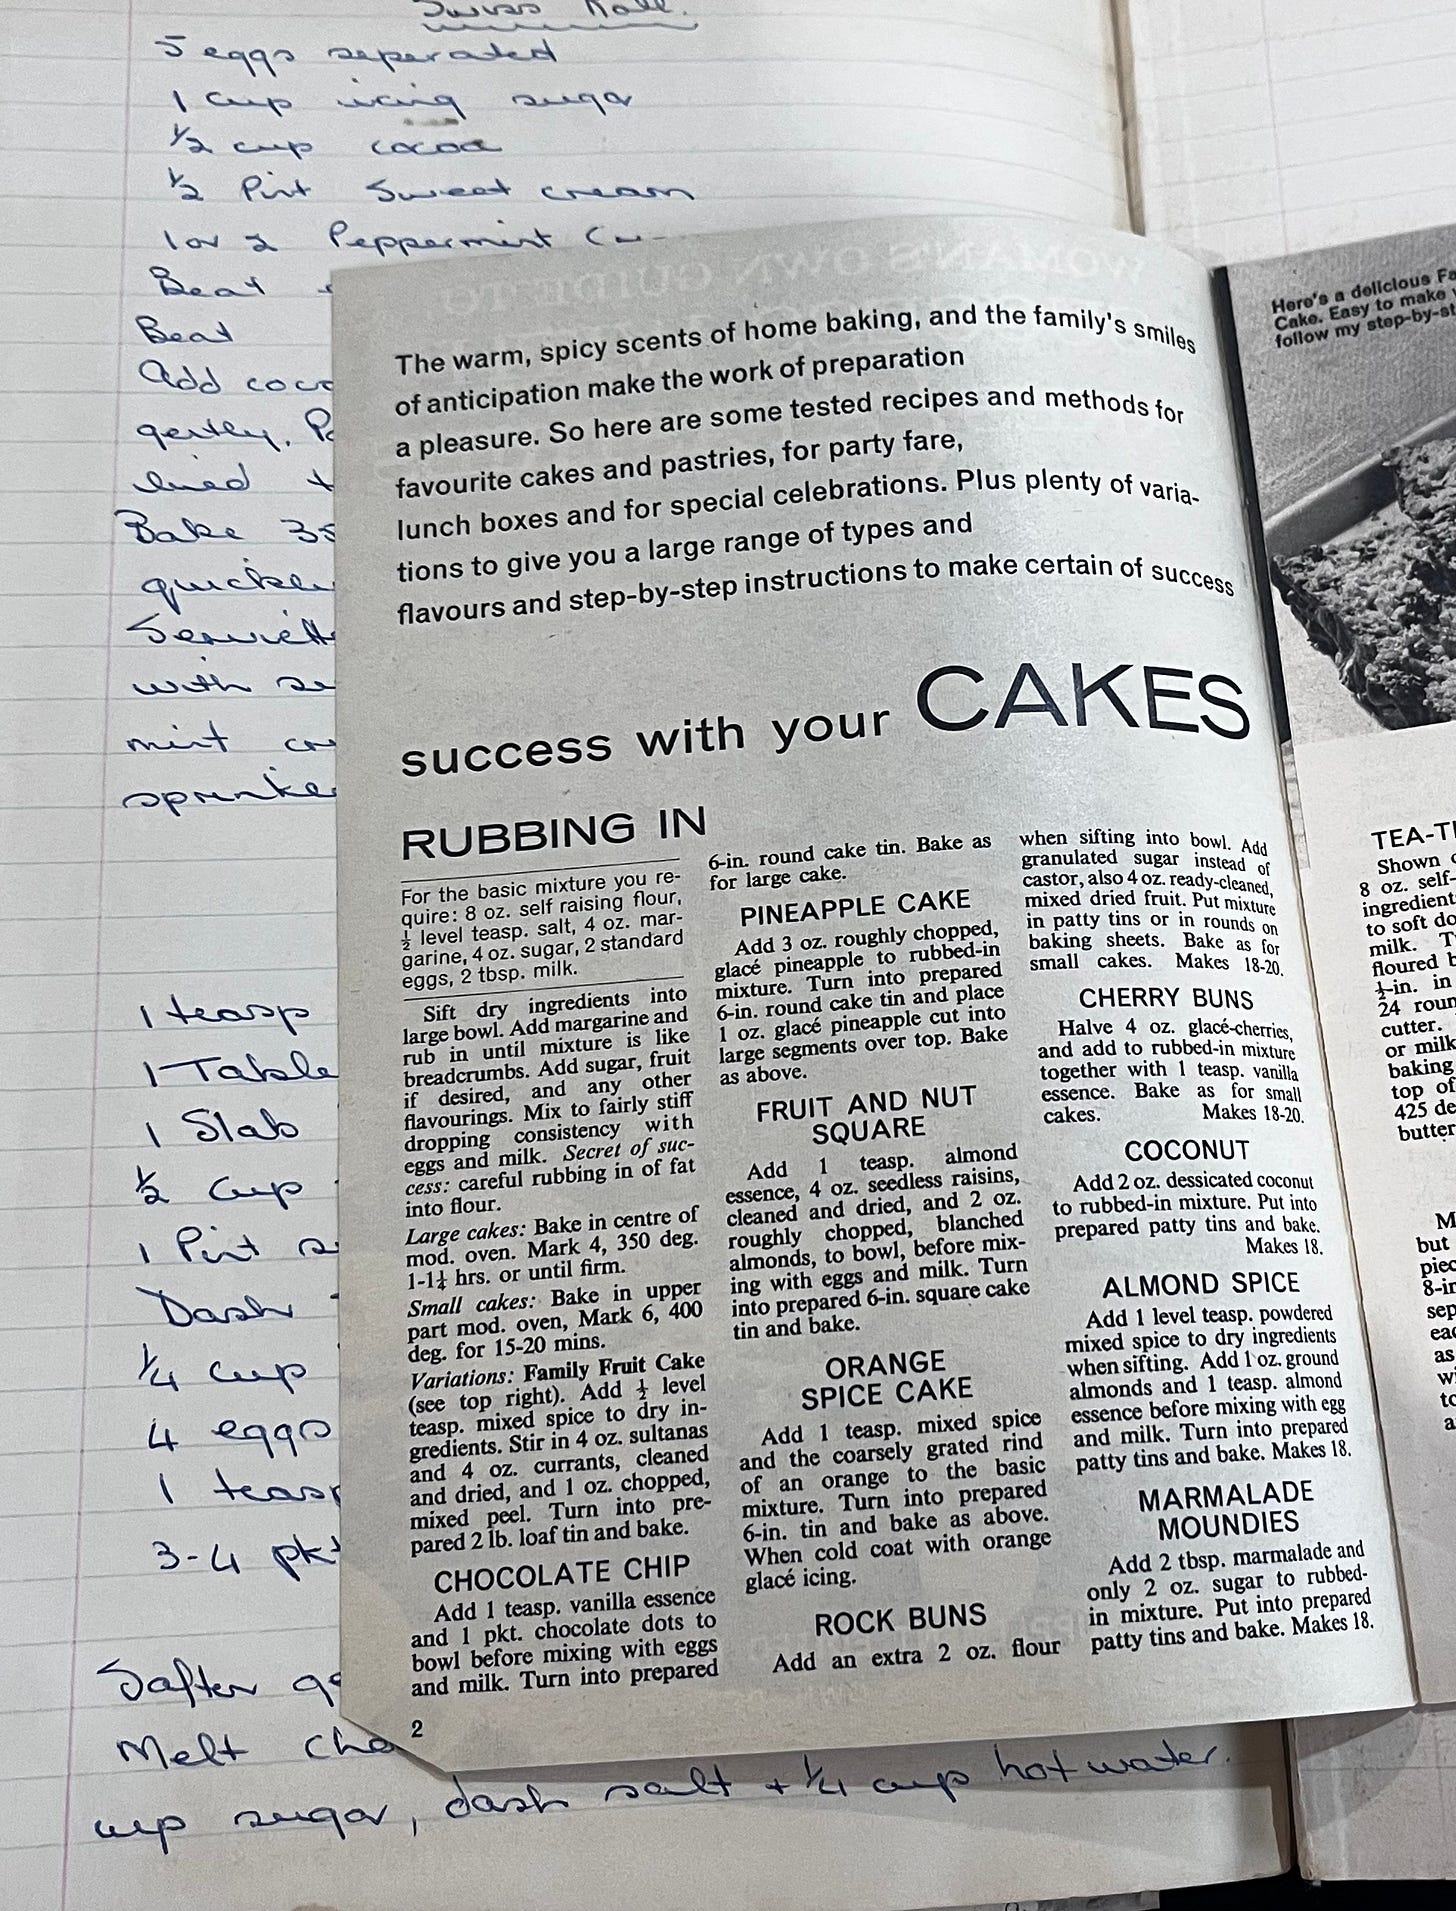 Swiss Roll.
5 eggs seperated
1 cup icing sugar
1/2 cup cocoa
1/2 Pint Sweet cream
1 or 2 Peppermint
Beat
Beat
Add
gently.
lined
Bake
quickly
with
mint
1 teasp
1 Table
1 Slab
1/2 Cup
1 Pint
Dash
1/4 cup
4 eggs
1 teasp
3-4 pkt
Melt
cup sugar, dash salt + 1/4 cup hot water.
WOMAN'S OWN GUIDE TO
The warm, spicy scents of home baking, and the family's smiles
of anticipation make the work of preparation
a pleasure. So here are some tested recipes and methods for
favourite cakes and pastries, for party fare,
lunch boxes and for special celebrations. Plus plenty of varia-
tions to give you a large range of types and
flavours and step-by-step instructions to make certain of success
success with your CAKES
RUBBING IN
For the basic mixture you re-
quire: 8 oz. self raising flour,
½ level teasp. salt, 4 oz. mar-
garine, 4 oz. sugar, 2 standard
eggs, 2 tbsp. milk.
Sift dry ingredients into
large bowl. Add margarine and
rub in until mixture is like
breadcrumbs. Add sugar, fruit
if desired, and any other
flavourings. Mix to fairly stiff
dropping consistency with
eggs and milk. Secret of suc-
cess: careful rubbing in of fat
into flour.
Large cakes: Bake in centre of
mod. oven. Mark 4, 350 deg.
1-1¼ hrs. or until firm.
Small cakes: Bake in upper
part mod. oven, Mark 6, 400
deg. for 15-20 mins.
Variations: Family Fruit Cake
(see top right). Add ½ level
teasp. mixed spice to dry in-
gredients. Stir in 4 oz. sultanas
and 4 oz. currants, cleaned
and dried, and 1 oz. chopped,
mixed peel. Turn into pre-
pared 2 lb. loaf tin and bake.
CHOCOLATE CHIP
Add 1 teasp. vanilla essence
and 1 pkt. chocolate dots to
bowl before mixing with eggs
and milk. Turn into prepared
2
6-in. round cake tin. Bake as
for large cake.
PINEAPPLE CAKE
Add 3 oz. roughly chopped,
glacé pineapple to rubbed-in
mixture. Turn into prepared
6-in. round cake tin and place
1 oz. glacé pineapple cut into
large segments over top. Bake
as above.
FRUIT AND NUT
SQUARE
Add 1 teasp. almond
essence, 4 oz. seedless raisins,
cleaned and dried, and 2 oz.
roughly chopped, blanched
almonds, to bowl, before mix-
ing with eggs and milk. Turn
into prepared 6-in. square cake
tin and bake.
ORANGE
SPICE CAKE
Add 1 teasp. mixed spice
and the coarsely grated rind
of an orange to the basic
mixture. Turn into prepared
6-in. tin and bake as above.
When cold coat with orange
glacé icing.
ROCK BUNS
Add an extra 2 oz. flour
when sifting into bowl. Add
granulated sugar instead of
castor, also 4 oz. ready-cleaned,
mixed dried fruit. Put mixture
in patty tins or in rounds on
baking sheets. Bake as for
small cakes. Makes 18-20.
CHERRY BUNS
Halve 4 oz. glacé-cherries,
and add to rubbed-in mixture
together with 1 teasp. vanilla
essence. Bake as for small
cakes. Makes 18-20.
COCONUT
Add 2 oz. dessicated coconut
to rubbed-in mixture. Put into
prepared patty tins and bake.
Makes 18.
ALMOND SPICE
Add 1 level teasp. powdered
mixed spice to dry ingredients
when sifting. Add 1 oz. ground
almonds and 1 teasp. almond
essence before mixing with egg
and milk. Turn into prepared
patty tins and bake. Makes 18.
MARMALADE
MOUNDIES
Add 2 tbsp. marmalade and
only 2 oz. sugar to rubbed-
in mixture. Put into prepared
patty tins and bake. Makes 18.
Here's a delicious
Cake. Easy to make
follow my step-by-st
TEA-T
Shown
8 oz. self-
ingredient
to soft do
milk.
floured b
½-in. in
24 roun
cutter.
or milk
baking
top of
425 de
butter
but
piec
8-in
sep
eac
as